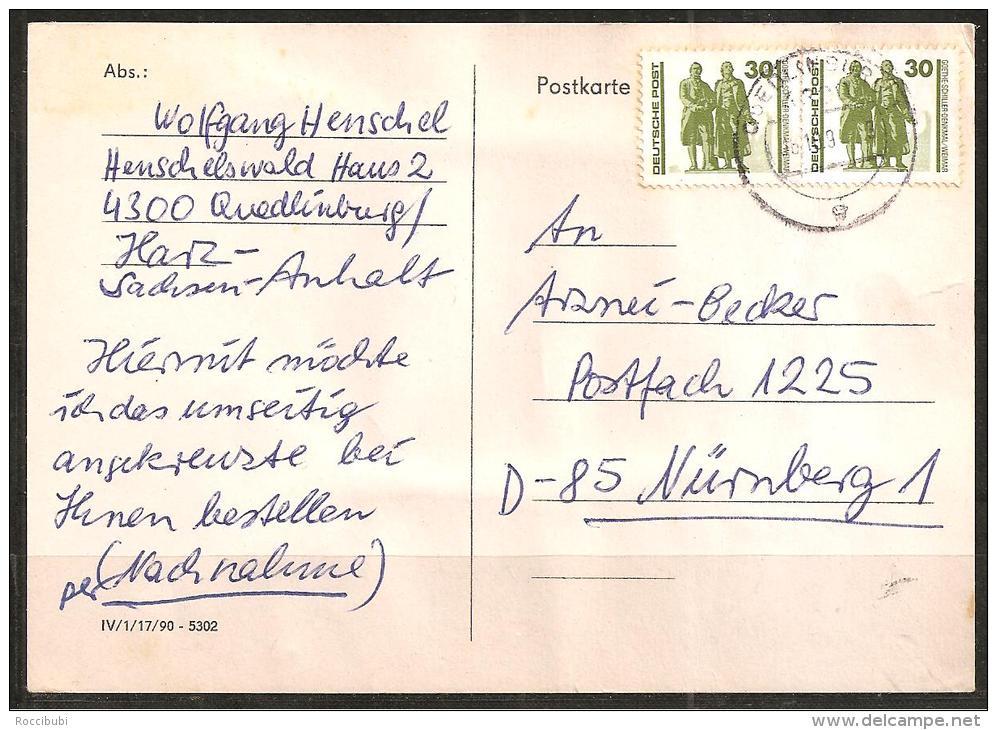 Abs.:
Wolfgang Henschel
Henschelswald Haus 2
4300 Quedlinburg/
Harz-
Sachsen-Anhalt
Hiermit möchte
ich das umseitig
angekreuzte bei
Ihnen bestellen
per (Nachnahme)
IV/1/17/90 - 5302
Postkarte
DEUTSCHE POST
30
GOETHE-SCHILLER-DENKMAL/WEIMAR
DEUTSCHE POST
30
GOETHE-SCHILLER-DENKMAL/WEIMAR
An
Arznei-Becker
Postfach 1225
D-85 Nürnberg 1
Roccibubi
www.delcampe.net